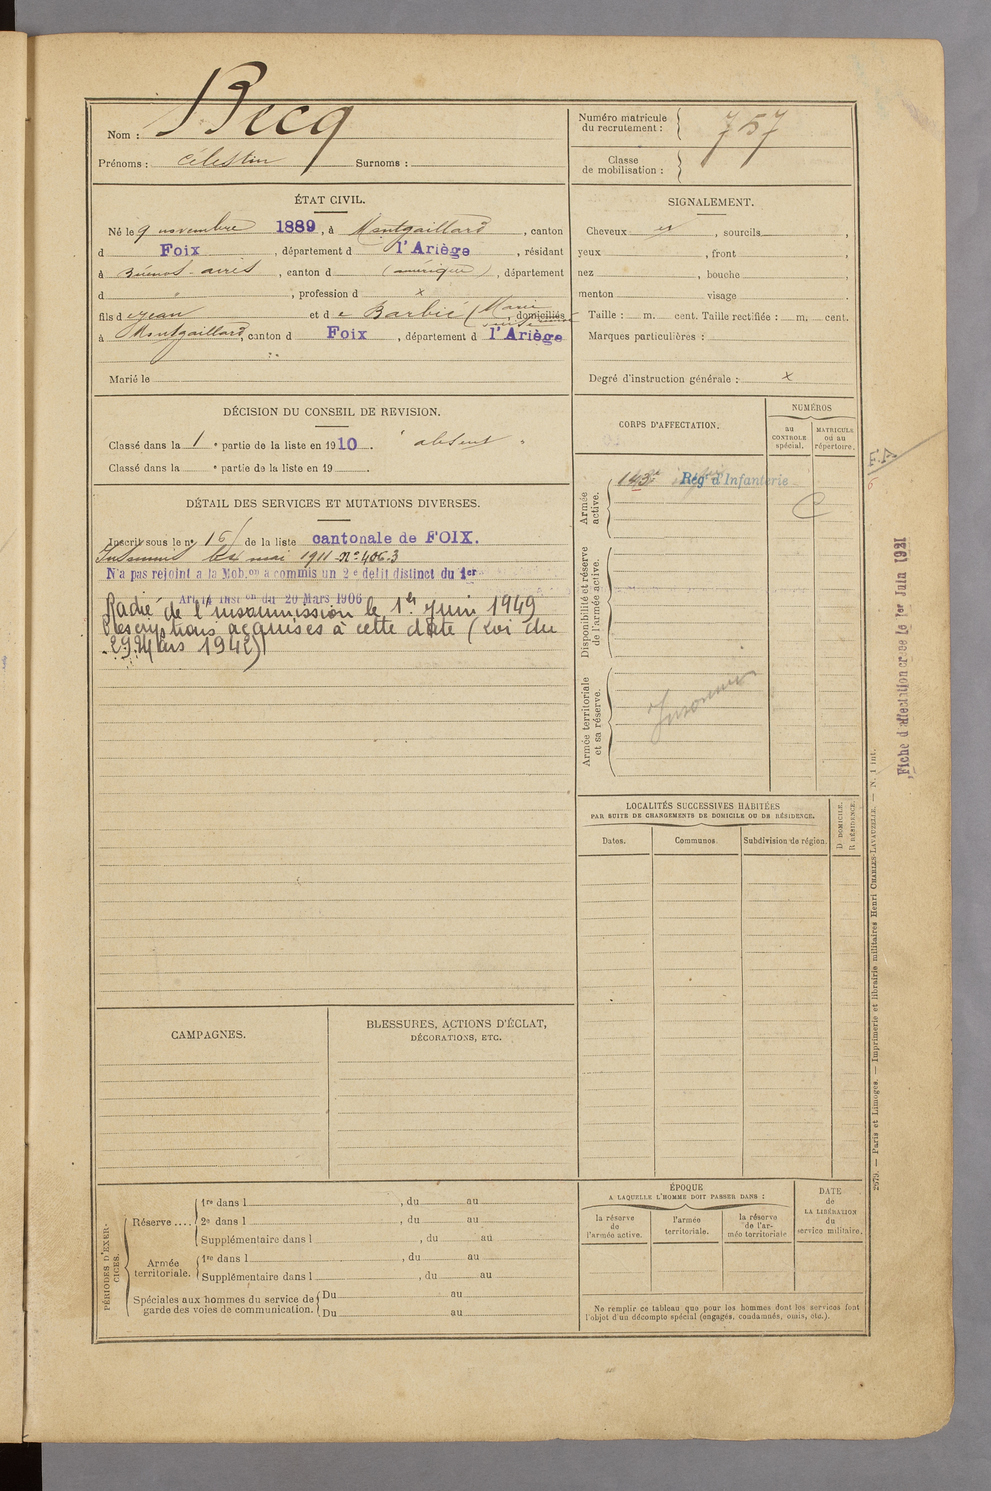 Nom : Becq
Prénoms : Célestin Surnoms :
Numéro matricule du recrutement : 757
Classe de mobilisation :
ÉTAT CIVIL.
Né le 9 novembre 1889, à Montgaillard, canton
d Foix, département d l'Ariège, résidant
à Buenos-aires, canton d (amérique), département
d " , profession d x
fils d e Jean et d e Barbié (Marie , domiciliés
à Montgaillard, canton d Foix, département d l'Ariège
Marié le
SIGNALEMENT.
Cheveux et , sourcils ,
yeux , front ,
nez , bouche ,
menton visage .
Taille : m. cent. Taille rectifiée : m. cent.
Marques particulières :
Degré d'instruction générale : x
DÉCISION DU CONSEIL DE REVISION.
Classé dans la 1 e partie de la liste en 1910. " absent "
Classé dans la e partie de la liste en 19 .
DÉTAIL DES SERVICES ET MUTATIONS DIVERSES.
Inscrit sous le no 16 de la liste cantonale de FOIX.
Insoumis le mai 1911 No 4063
N'a pas rejoint a la Mob.on a commis un 2e delit distinct du 1er
Art. Inst on du 20 Mars 1906
Radié de l'insoumission le 1er Juin 1949
Prescriptions acquises à cette date (Loi du
29 Mars 1942)
CORPS D'AFFECTATION.
NUMÉROS
au CONTROLE spécial.
MATRICULE ou au répertoire.
Armée active.
143e Regt d'Infanterie
C
Disponibilité et réserve de l'armée active.
Armée territoriale et sa réserve.
Insoumis
E.A
6
Fiche d'affectation créée le 1er Juin 1921
LOCALITÉS SUCCESSIVES HABITÉES
PAR SUITE DE CHANGEMENTS DE DOMICILE OU DE RÉSIDENCE.
Dates.
Communes.
Subdivision de région.
D DOMICILE.
R RÉSIDENCE.
CAMPAGNES.
BLESSURES, ACTIONS D'ÉCLAT,
DÉCORATIONS, ETC.
PÉRIODES D'EXERCICES.
Réserve ....
1re dans l , du au
2e dans l , du au
Supplémentaire dans l , du au
Armée territoriale.
1re dans l , du au
Supplémentaire dans l , du au
Spéciales aux hommes du service de garde des voies de communication.
Du au
Du au
ÉPOQUE
A LAQUELLE L'HOMME DOIT PASSER DANS :
la réserve de l'armée active.
l'armée territoriale.
la réserve de l'armée territoriale
DATE de LA LIBÉRATION du service militaire.
Ne remplir ce tableau que pour les hommes dont les services font
l'objet d'un décompte spécial (engagés, condamnés, omis, etc.).
2979. — Paris et Limoges. — Imprimerie et librairie militaires Henri CHARLES-LAVAUZELLE. — N. 1 int.